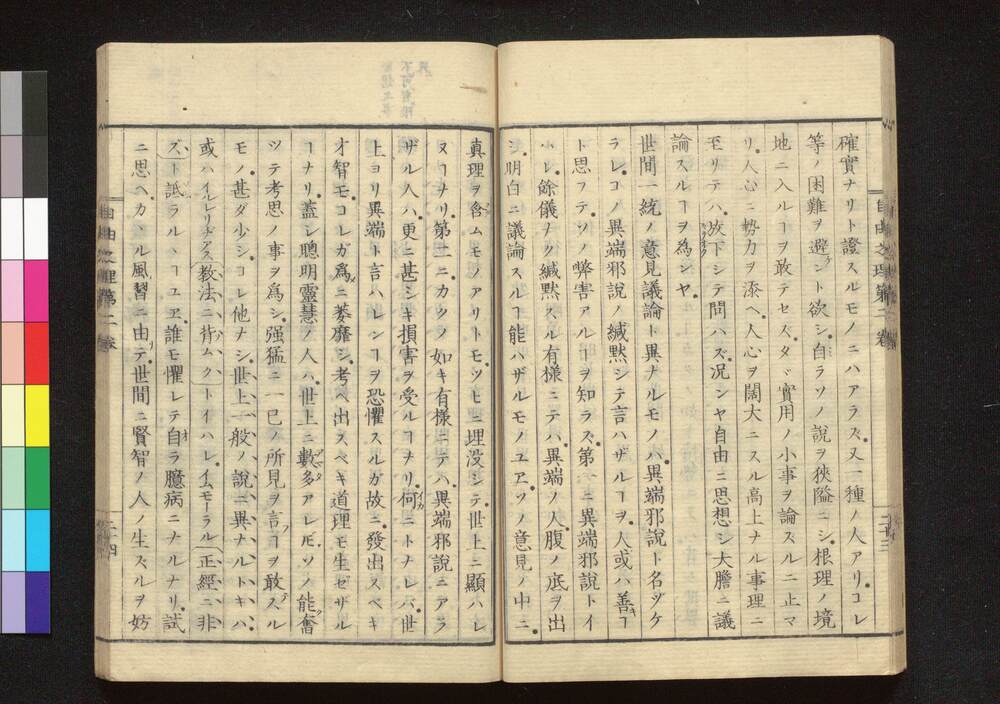 確實ナリト證スルモノニハアラズ又一種ノ人アリコレ
等ノ困難ヲ避ント欲シ自ラソノ說ヲ狹隘ニシ根理ノ境
地ニ入ルヿヲ敢テセズタヾ實用ノ小事ヲ論スルニ止マ
リ人心ニ勢力ヲ添ヘ人心ヲ闊大ニスル高上ナル事理ニ
至リテハ放下シテ問ハズ况ンヤ自由ニ思想シ大膽ニ議
論スルヿヲ為ンヤ
世間一統ノ意見議論ト異ナルモノハ異端邪說ト名ヅケ
ラレコノ異端邪說ノ緘黙シテ言ハザルヿヲ人或ハ善ヿ
ト思フテソノ弊害アルヿヲ知ラズ第一ニ異端邪說トイ
ハレ餘儀ナク緘黙スル有樣ニテハ異端ノ人腹ノ底ヲ出
シ明白ニ議論スルヿ能ハザルモノユヱソノ意見ノ中ニ
自由之理第二卷
二十三
眞理ヲ含ムモノアリトモツヒニ埋沒シテ世上ニ顯ハレ
ヌヿナリ第二ニカクノ如キ有樣ニテハ異端邪說ニアラ
ザル人ハ更ニ甚シキ損害ヲ受ルヿナリ何ニトナレバ世
上ヨリ異端ト言ハレンヿヲ恐懼スルガ故ニ發出スベキ
才智モコレガ為ニ萎靡シ考ヘ出スベキ道理モ生ゼザル
ヿナリ蓋シ聰明靈慧ノ人ハ世上ニ數多アレ𪜈ソノ能奮
ツテ考思ノ事ヲ為シ强猛ニ一己ノ所見ヲ言フヿヲ敢スル
モノ甚ダ少シコレ他ナシ世上一般ノ說ニ異ナルトキハ
或ハイルレリヂアス敎法ニ背ムクトイハレイムモーラル正經ニ非
ズト詆ラルヽヿユヱ誰モ懼レテ自ラ臆病ニナルナリ試
ニ思ヘカヽル風習ニ由テ世間ニ賢智ノ人ノ生ズルヲ妨
自由之理第二卷
二十四